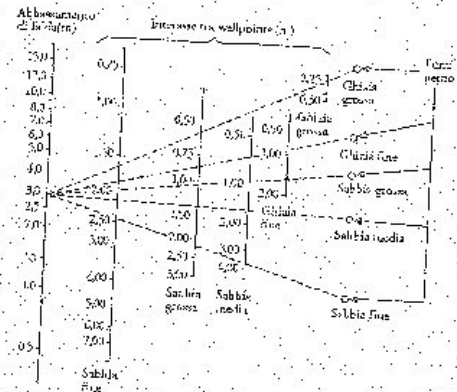 Abbassamento
di falda (m)
Interasse tra wellpoints (m)
15,0
10,0
8,0
7,0
6,0
5,0
4,0
3,0
2,5
2,0
1,0
0,5
0,75
1,00
2,00
2,50
3,00
4,00
5,00
6,00
7,00
Sabbia
fine
0,50
0,75
1,00
1,50
2,00
2,50
3,00
Sabbia
grossa
0,50
1,00
2,00
3,00
4,00
Sabbia
media
0,50
1,00
2,00
Ghiaia
fine
0,25
0,50
Ghiaia
grossa
Ghiaia
grossa
Ghiaia fine
Sabbia grossa
Sabbia media
Sabbia fine
perno